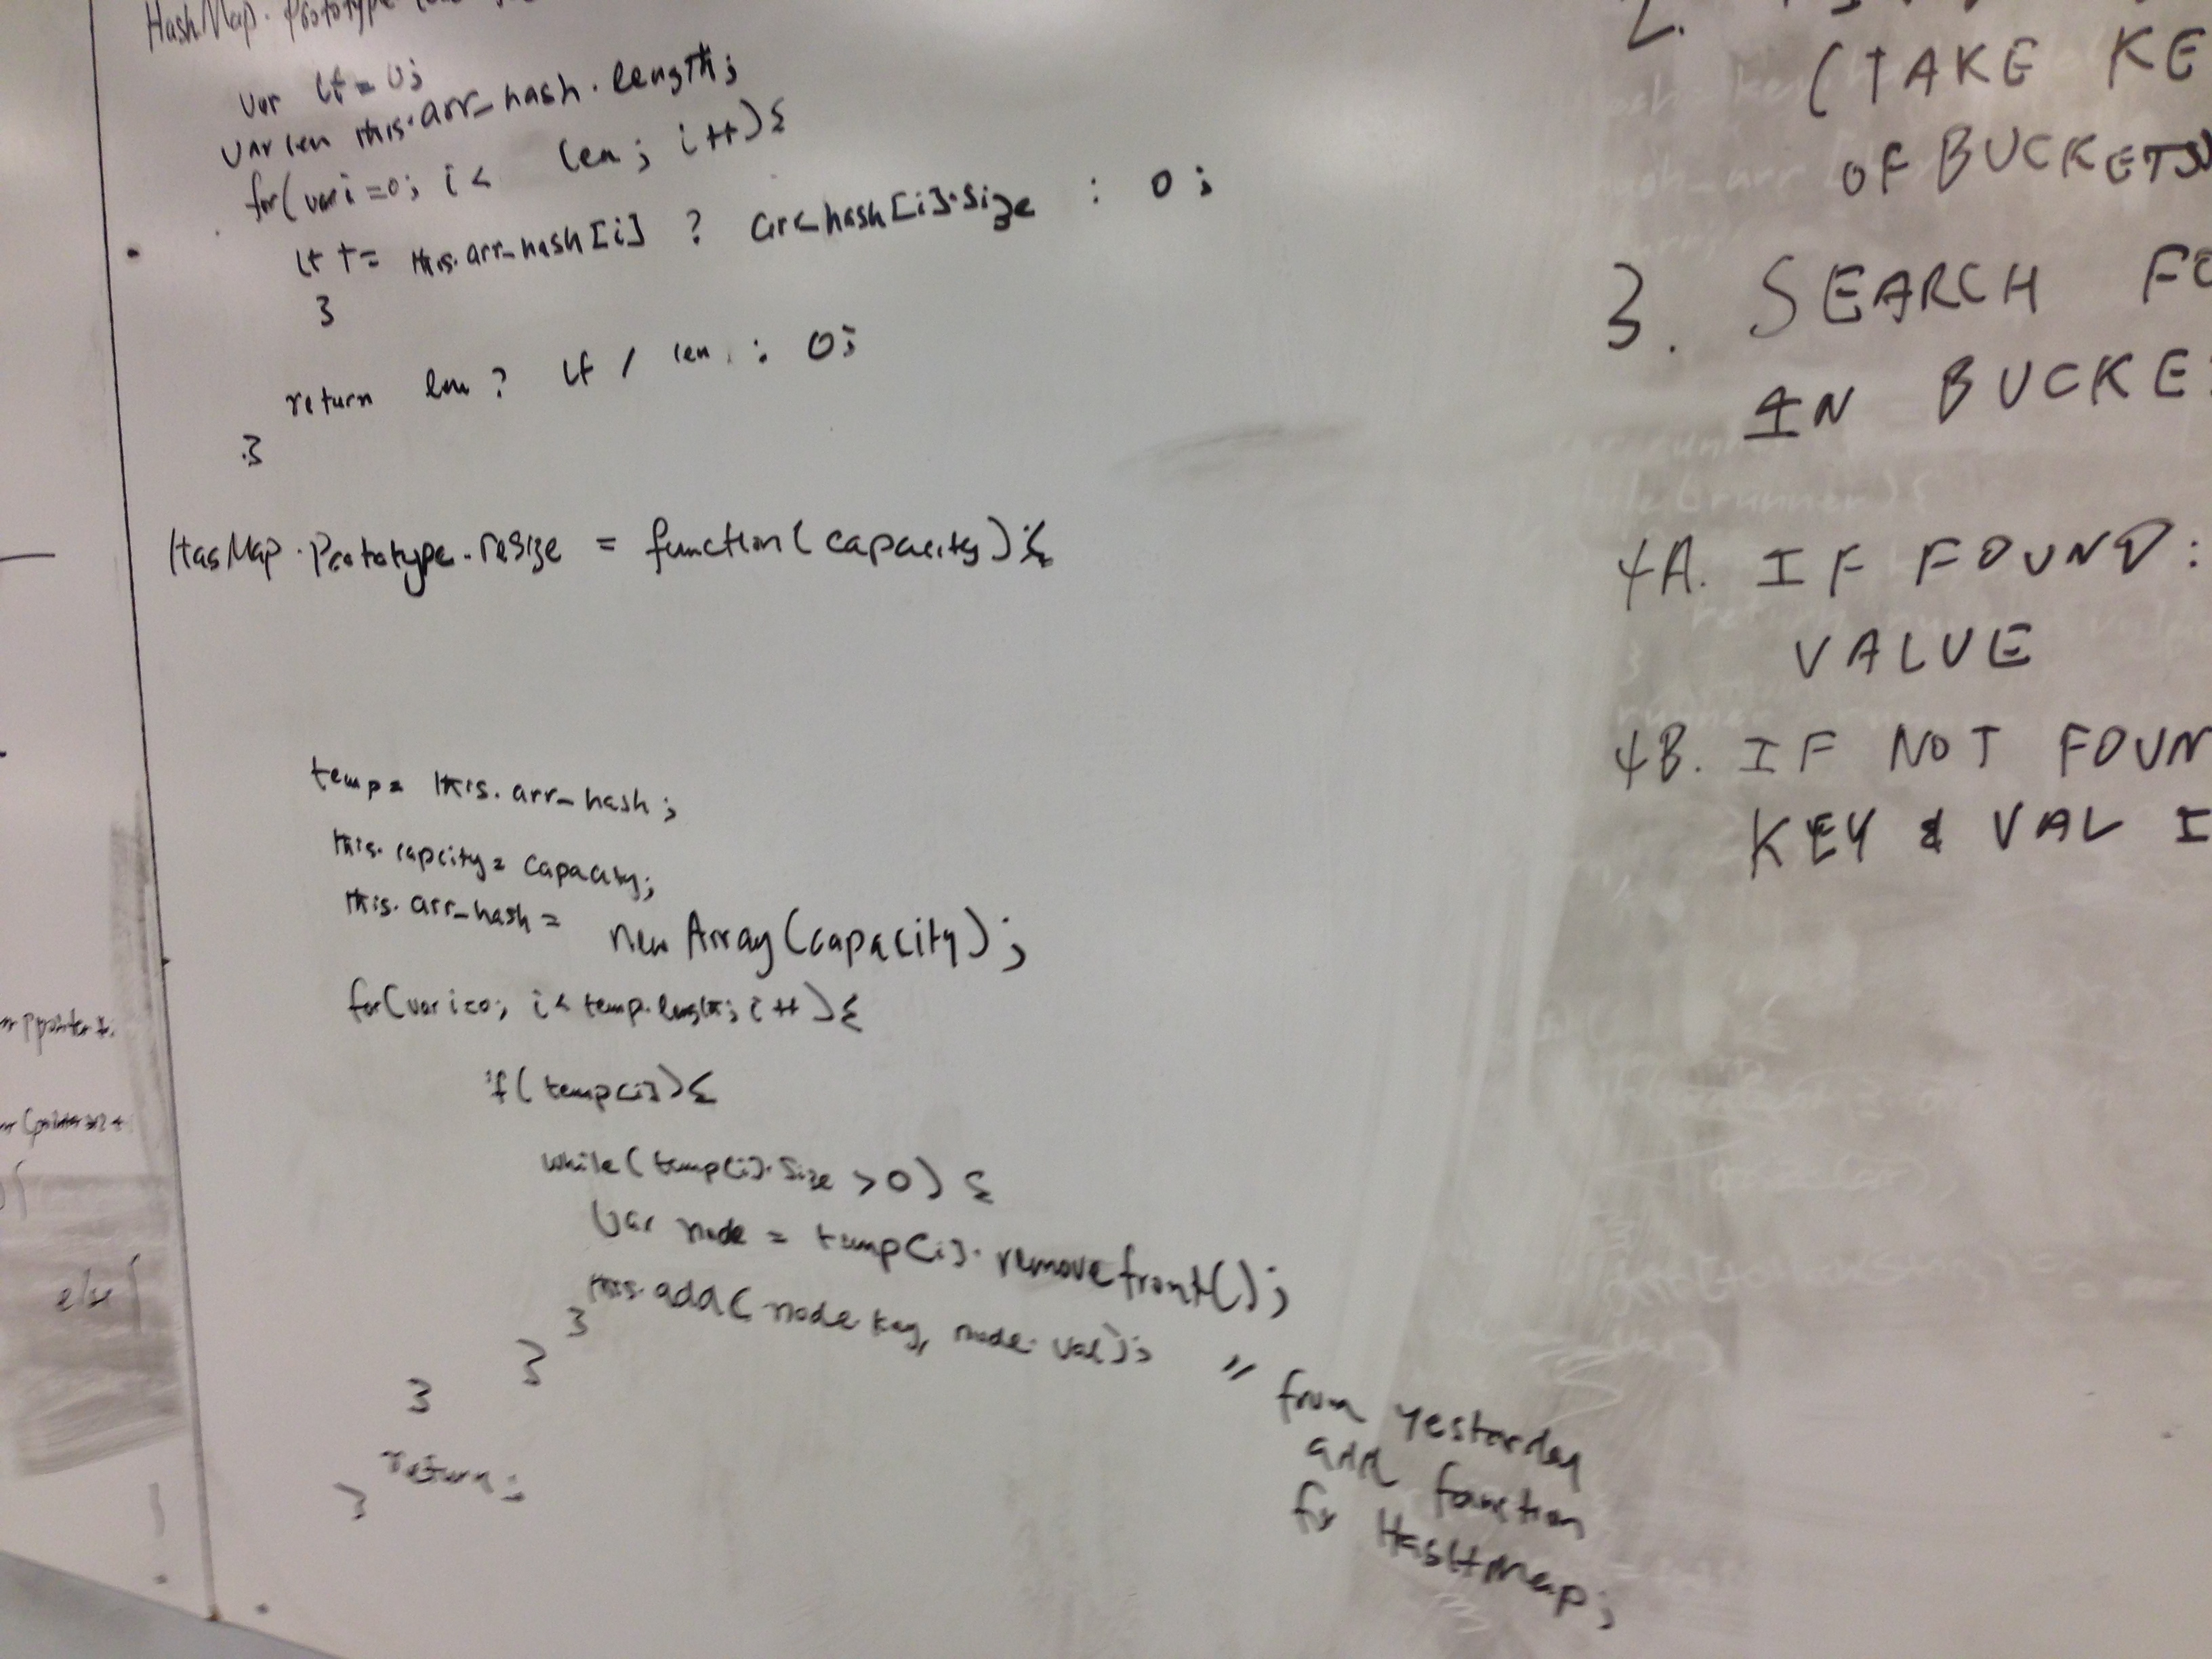 HashMap.Prototype
var lf = 0;
var len this.arr_hash.length;
for(var i=0; i< len; i++){
lf += this.arr_hash[i] ? arr_hash[i].size : 0;
}
return len? lf / len : 0;
}
HasMap.Prototype.resize = function(capacity){
temp= this.arr_hash;
this.capcity= capacity;
this.arr_hash= new Array(capacity);
for(var i=0; i< temp.length; i++){
if(temp[i]){
while(temp[i].size >0) {
var node = temp[i].removefront();
this.add(node.key, node.val); // from yesterday
}
add function
for HashMap;
}
}
return;
}
else{
2.
(TAKE KE
OF BUCKETS)
3. SEARCH FO
IN BUCKE
4A. IF FOUND:
VALUE
4B. IF NOT FOUN
KEY & VAL I